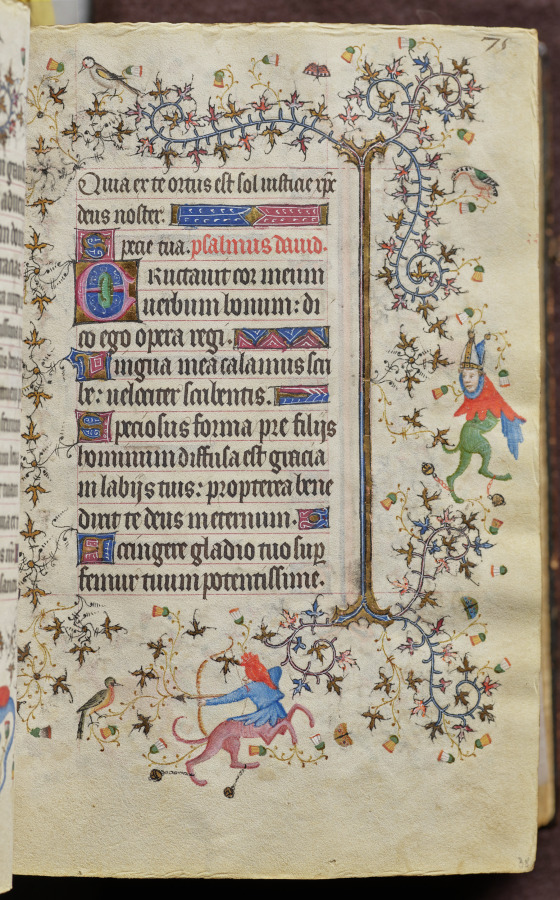 75
Quia ex te ortus est sol iusticie xpc
deus noster.
Specie tua. psalmus dauid.
Eructauit cor meum
uerbum bonum: di
co ego opera regi.
Lingua mea calamus scri
be: uelociter scribentis.
Speciosus forma pre filijs
hominum diffusa est gracia
in labijs tuis: propterea bene
dixit te deus in eternum.
Accingere gladio tuo sup
femur tuum potentissime.